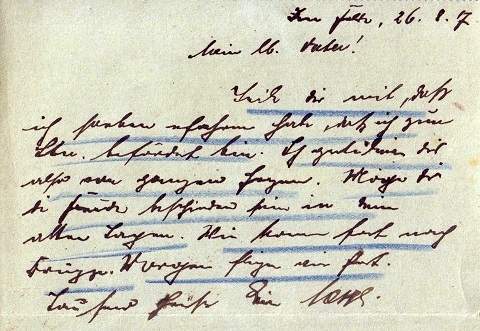 Im Felde, 26. 8. 
Mein lb. Vater!
Teile dir mit, daß
ich soeben erfahren habe, daß ich zum
Ltn. befördert bin. Ich gratuliere dir
also von ganzem Herzen. Möge dir
die Freude beschieden sein in dein
alten Tagen. Wir kommen fort nach
Brügge. Morgen fort.
Tausend Grüße Dein